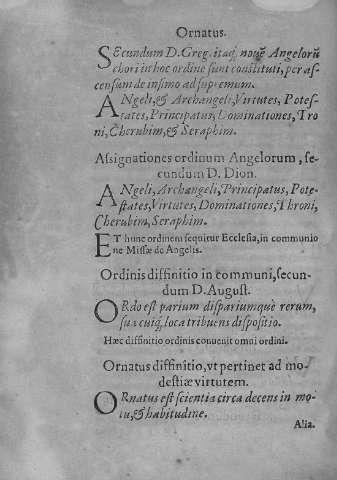 Ornatus.
SEcundum D. Greg. itaq; nouẽ Angelorũ
chori in hoc ordine sunt constituti, per as-
censum de insimo ad supremum.
ANgeli, & Archangeli, Virtutes, Potes-
tates, Principatus, Dominationes, Thro
ni, Cherubim, & Seraphim.
Assignationes ordinum Angelorum, se-
cundum D. Dion.
ANgeli, Archangeli, Principatus, Pote-
states, Virtutes, Dominationes, Throni,
Cherubim, Seraphim.
ET hunc ordinem sequitur Ecclesia, in communio
ne Missæ de Angelis.
Ordinis diffinitio in communi, secun-
dum D. August.
ORdo est parium dispariumquè rerum,
sua cuiq; loca tribuens dispositio.
Hæc diffinitio ordinis conuenit omni ordini.
Ornatus diffinitio, vt pertinet ad mo-
destiæ virtutem.
ORnatus est scientia circa decens in mo-
tu, & habitudine.
Alia.